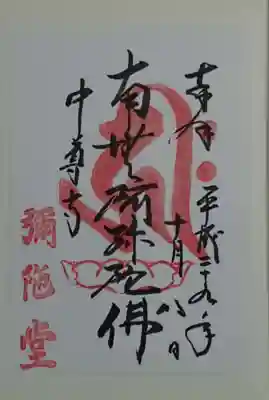 奉拝 平成二九年
十月八日
南無阿弥陀佛
中尊寺
彌陀堂